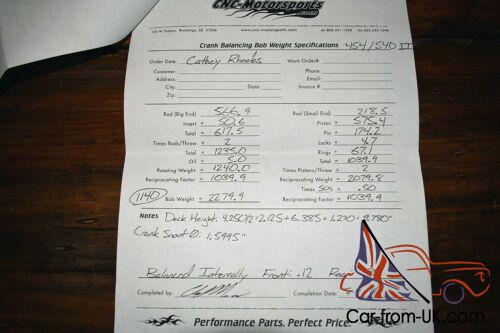 CNC-Motorsports .com
www.cnc-motorsports.com
Crank Balancing Bob Weight Specifications 454/540 II
Order Date: Cathey Rhoades Work Order#:
Customer: Phone:
Address: Email:
City: State: Invoice #:
Zip:
Rod (Big End) = 566.9 Rod (Small End) = 218.5
Insert = 50.6 Piston = 575.4
Total = 617.5 Pin = 174.2
Times Rods/Throw = 2 Locks = 4.7
Total = 1235.0 Rings = 67.1
Oil = 5.0 Total = 1039.9
Rotating Weight = 1240.0 Times Pistons/Throw = 2
Reciprocating Factor = 1039.9 Reciprocating Weight = 2079.8
Times 50% = .50
1140 Bob Weight = 2279.9 Reciprocating Factor = 1039.9
Notes Deck Height: 4.250/2=2.125+6.385+1.270=9.780"
Crank Snout Ø: 1.5995"
Balanced Internally Front: -12 Rear
Completed by: Completion Date:
Performance Parts. Perfect Price.
Car-from-UK.com